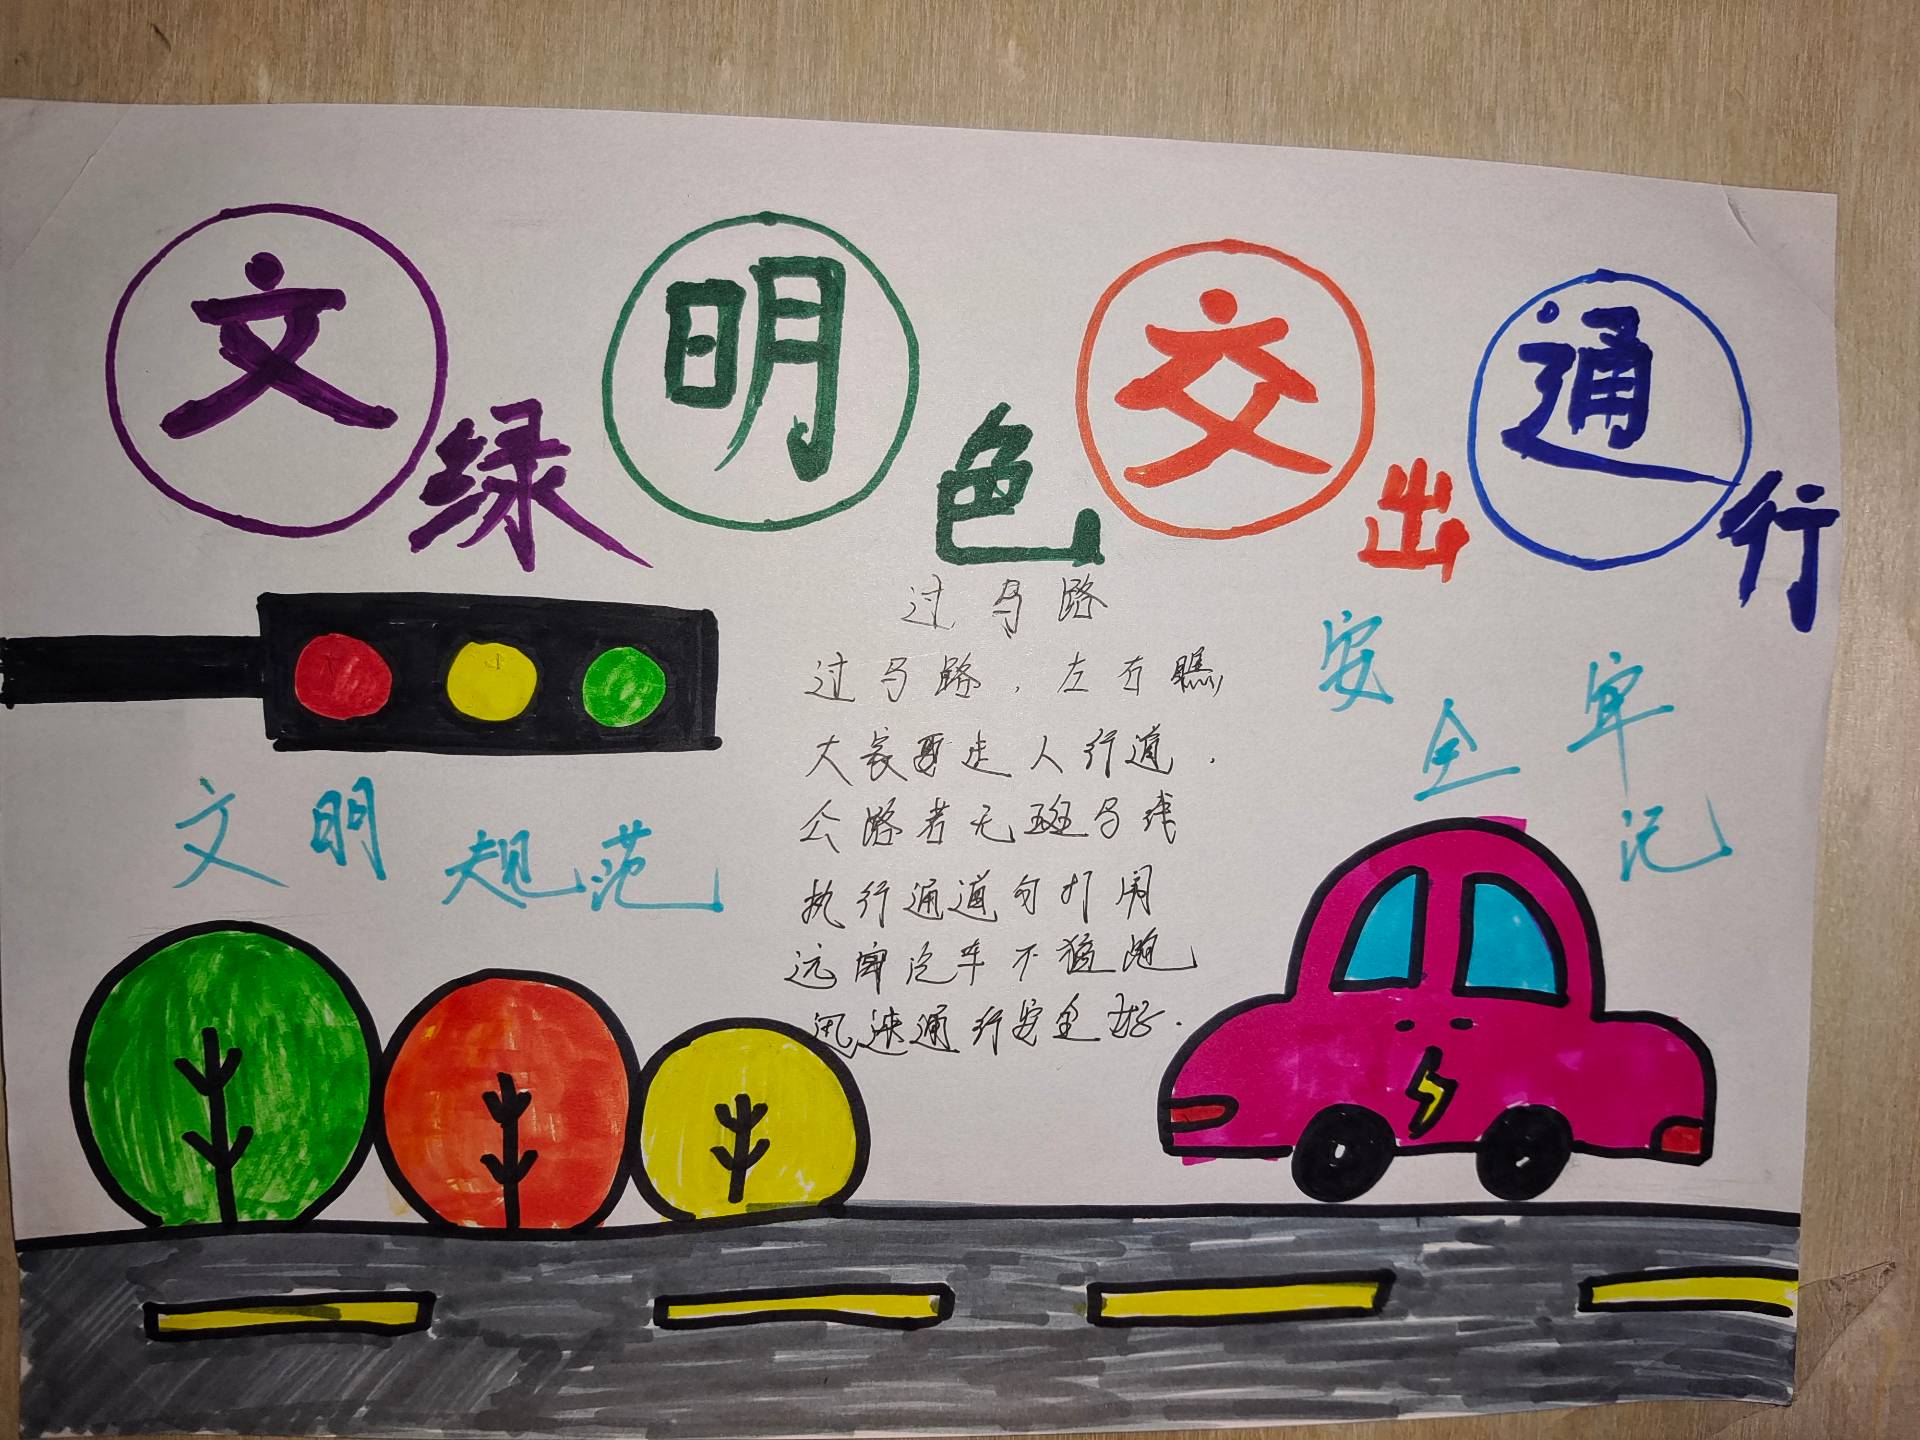 文明交通
绿色出行
过马路
安全牢记
过马路，左右瞧，
大家要走人行道，
文明规范
公路若无斑马线
执行通道勿打闹
远离汽车不猛跑
迅速通行安全好.